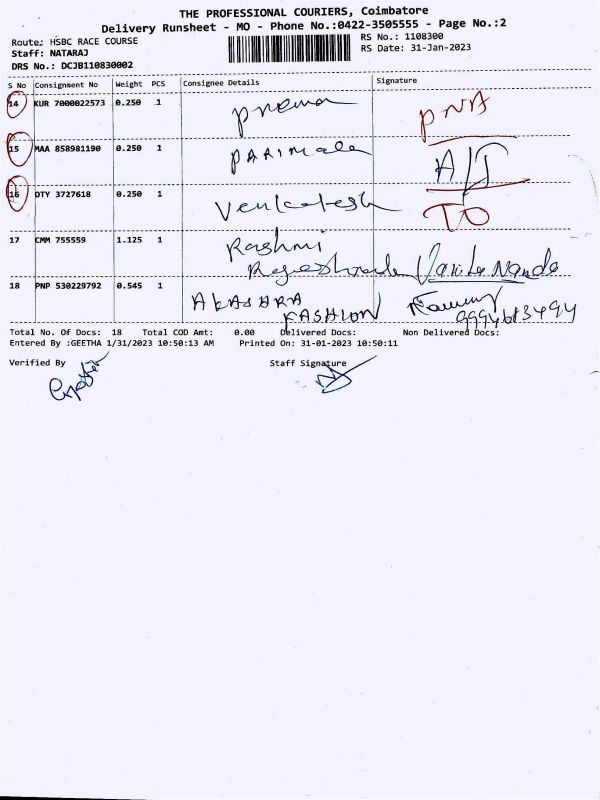 THE PROFESSIONAL COURIERS, Coimbatore
Delivery Runsheet - MO - Phone No.:0422-3505555 - Page No.:2
Route: HSBC RACE COURSE
RS No.: 1108300
Staff: NATARAJ
RS Date: 31-Jan-2023
DRS No.: DCJB110830002
S No Consignment No Weight PCS Consignee Details Signature
14 KUR 7000022573 0.250 1 Prema PNA
15 MAA 858981190 0.250 1 PARIMALA
16 DTY 3727618 0.250 1 Venkatesh TO
17 CMM 755559 1.125 1 Rashmi
18 PNP 530229792 0.545 1 AKASHRA
FASHION 9994613494
Total No. Of Docs: 18 Total COD Amt: 0.00 Delivered Docs: Non Delivered Docs:
Entered By :GEETHA 1/31/2023 10:50:13 AM Printed On: 31-01-2023 10:50:11
Verified By Staff Signature